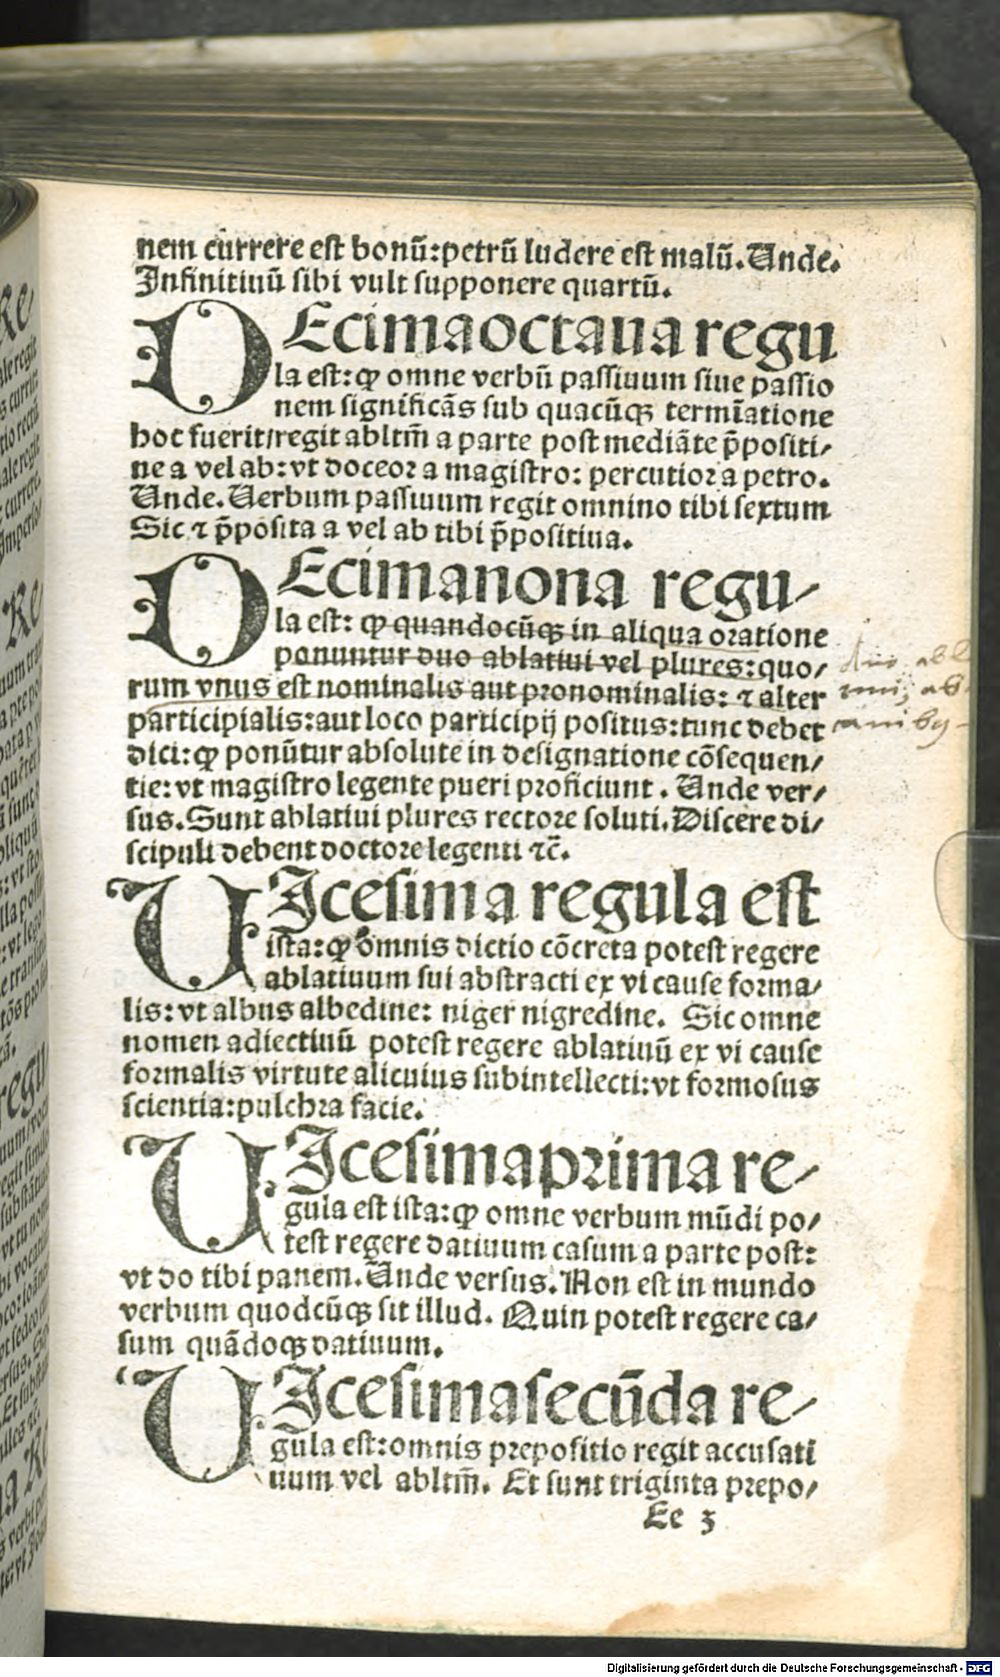 nem currere est bonū: petrū ludere est malū. Unde.
Infinitiuū sibi vult supponere quartū.
DEcimaoctaua regu
la est: ꝙ omne verbū passiuum siue passio
nem significās sub quacūqꝫ termīatione
hoc fuerit/regit abltm̄ a parte post mediāte p̄positi/
ne a vel ab: vt doceor a magistro: percutior a petro.
Unde. Uerbum passiuum regit omnino tibi sextum
Sic ⁊ p̄posita a vel ab tibi p̄positiua.
DEcimanona regu/
la est: ꝙ quandocūqꝫ in aliqua oratione
ponuntur duo ablatiui vel plures: quo/
rum vnus est nominalis aut pronominalis: ⁊ alter
participialis: aut loco participij positus: tunc debet
dici: ꝙ ponūtur absolute in designatione cōsequen/
tie: vt magistro legente pueri proficiunt. Unde ver/
sus. Sunt ablatiui plures rectore soluti. Discere di/
scipuli debent doctore legenti ⁊c̄.
UIcesima regula est
ista: ꝙ omnis dictio cōcreta potest regere
ablatiuum sui abstracti ex vi cause forma/
lis: vt albus albedine: niger nigredine. Sic omne
nomen adiectiuū potest regere ablatiuū ex vi cause
formalis virtute alicuius subintellecti: vt formosus
scientia: pulchra facie.
UIcesimaprima re/
gula est ista: ꝙ omne verbum mūdi po/
test regere datiuum casum a parte post:
vt do tibi panem. Unde versus. Non est in mundo
verbum quodcūqꝫ sit illud. Quin potest regere ca/
sum quādoqꝫ datiuum.
UIcesimasecūda re/
gula est: omnis prepositio regit accusati
uum vel abltm̄. Et sunt triginta prepo/
Ee 3
Digitalisierung gefördert durch die Deutsche Forschungsgemeinschaft - DFG